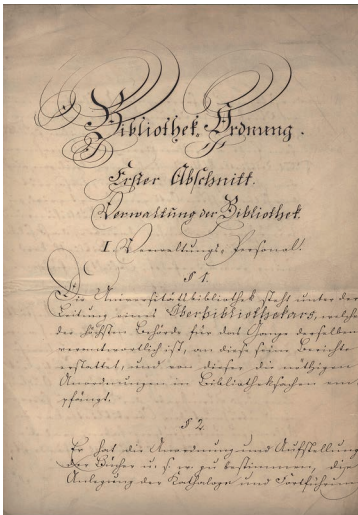 Bibliothek-Ordnung.
Erster Abschnitt.
Verwaltung der Bibliothek.
I. Verwaltungs-Personal.
§ 1.
Die Universitätsbibliothek steht unter der
Leitung eines Oberbibliothekars, welcher
der höchsten Behörde für das Ganze derselben
verantwortlich ist, an diese seine Berichte
erstattet, und von dieser die nöthigen
Anordnungen in Bibliotheksachen em¬
pfängt.
§ 2.
Er hat die Anordnung und Aufstellung
der Bücher u. s. w. zu bestimmen, die
Anlegung der Kataloge und Fortführung